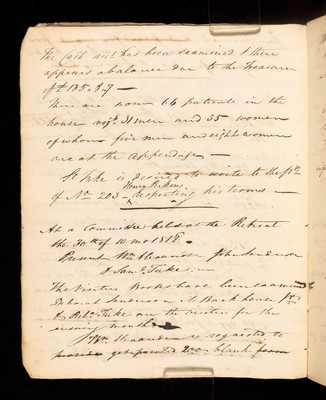 The Cash acct. has been examined & there
appears a balance due to the Treasurer
of £ 185. 8. 7 —
There are now 66 patients in the
house viz. 31 men and 35 women
of whom five men and eight women
are at the Appendage —
is desired to write to the
of No. 203 — Henry Perkins respecting his terms —
At a Committee held at the Retreat
the 30th of 10 mo 1817.
Present Wm. Alexander John Sanderson
& Saml. Tuke. —
The Visitors Books have been examined
Deborah Sanderson M. Backhouse Jr.
& Reba. Tuke are the visitors for the
ensuing month —
Wm. Alexander is requested to
provide get printed 200 blank form